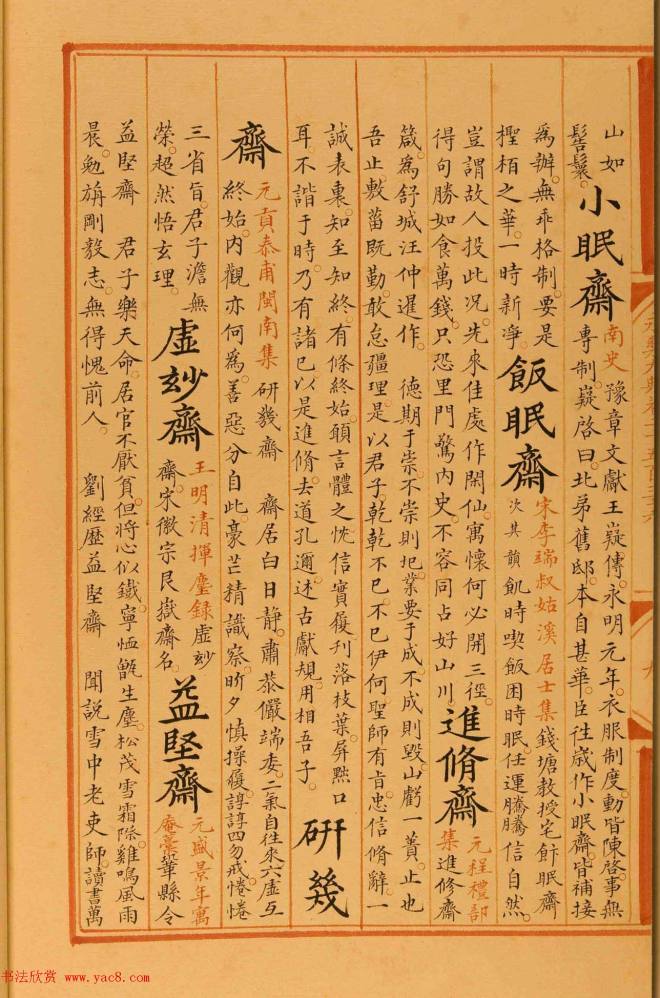 永樂大典卷之二千五百三十六
九
山如
髻鬟
小眠齋
南史豫章文獻王嶷傳永明元年衣服制度動皆陳啓事無
專制嶷啓曰北弟舊邸本自甚華臣往歲作小眠齋皆補接
為辦無乖格制要是
檉栢之華一時新淨
飯眠齋
宋李端叔姑溪居士集錢塘教授宅飦眠齋
次其韻飢時喫飯困時眠任運騰騰信自然
豈謂故人投此况先來佳處作閑仙寓懷何必開三徑
得句勝如食萬錢只恐里門驚内史不容同占好山川
進脩齋
元程禮部
集進修齋
箴為舒城汪仲暹作 德期于崇不崇則圯業要于成不成則毀山虧一蕢止也
吾止敷菑既勤敢怠疆理是以君子乾乾不已不已伊何聖師有旨忠信脩辭一
誠表裏知至知終有條終始願言體之忱信實履刋落枝葉屏黜口
耳不諧于時乃有諸已以是進脩去道孔邇述古獻規用相吾子
研幾
齋
元貢泰甫閩南集研幾齋 齋居白日静肅恭儼端委二氣自往來六虛互
終始内觀亦何為善惡分自此豪芒精識察昕夕慎操履諄諄四勿戒惓惓
三省旨君子澹無
榮超然悟玄理
虛玅齋
王明清揮麈録虛玅
齋宋徽宗艮嶽齋名
益堅齋
元盛景年寓
庵藁蕐縣令
益堅齋 君子樂天命居官不厭貧但將心似鐵寧恤甑生塵松茂雪霜際雞鳴風雨
晨勉旃剛毅志無得愧前人 劉經歷益堅齋 聞說雪中老吏師讀書萬
书法欣赏 www.yac8.com